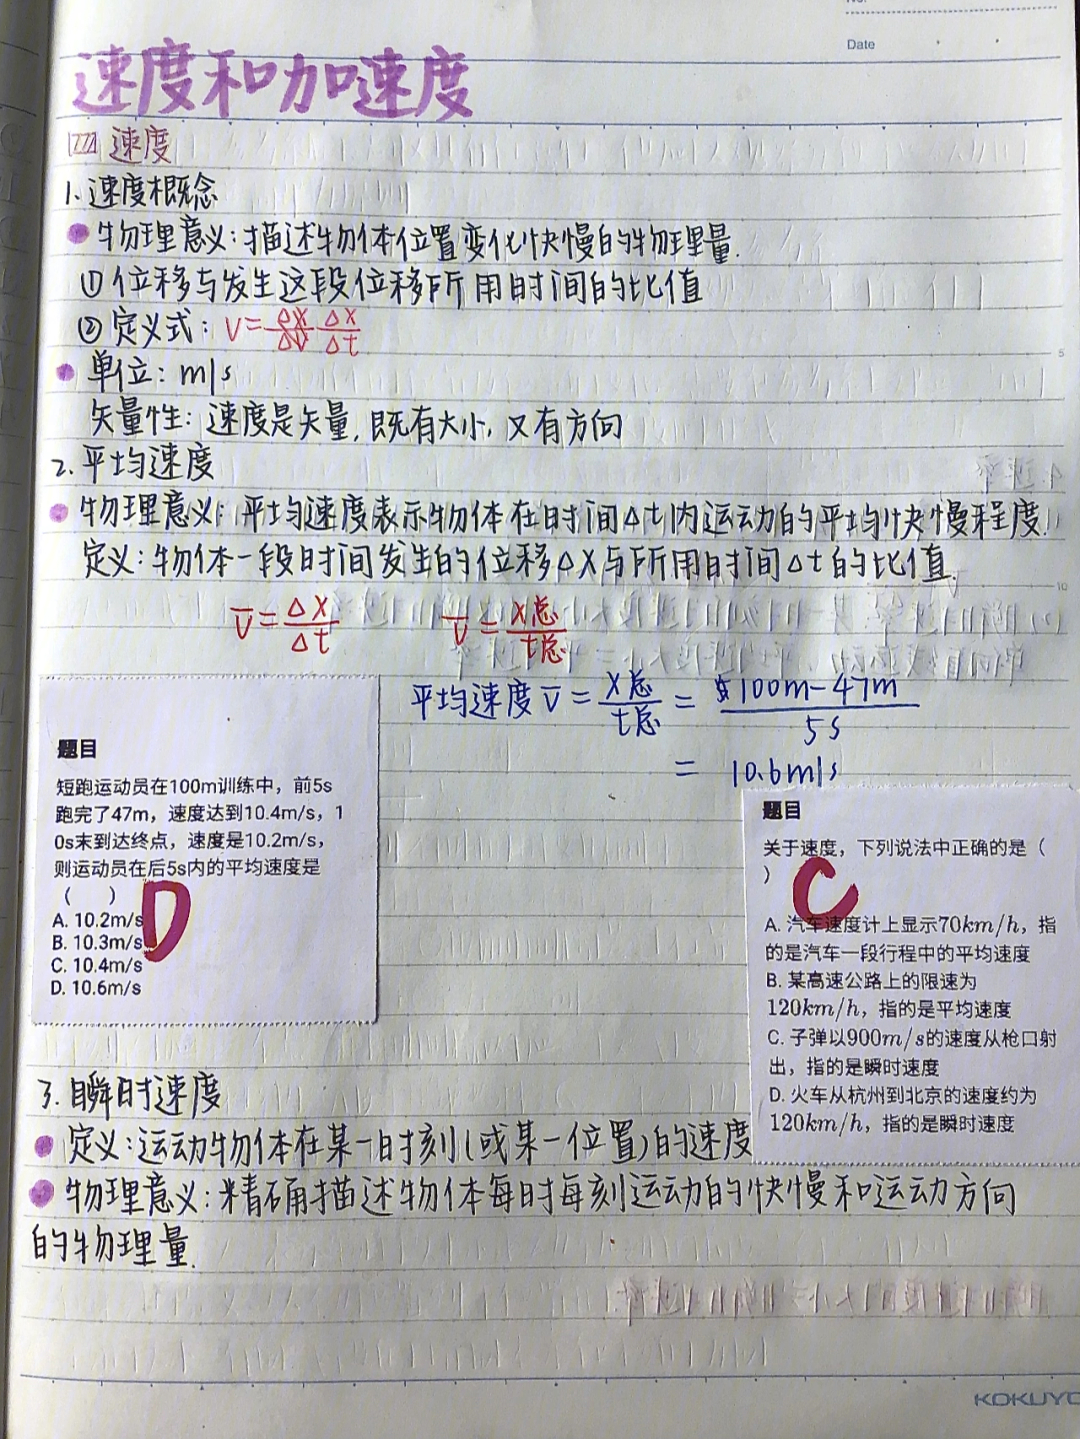 Date
速度和加速度
速度
1. 速度概念
物理意义:描述物体位置变化快慢的物理量.
① 位移与发生这段位移所用时间的比值
② 定义式: V= Δx/Δt
单位: m/s
矢量性: 速度是矢量, 既有大小, 又有方向
2. 平均速度
物理意义: 平均速度表示物体在时间Δt内运动的平均快慢程度.
定义:物体一段时间发生的位移Δx与所用时间Δt的比值.
V̅= Δx/Δt V̅= x总/t总
平均速度 V̅ = x总/t总 = 100m-47m / 5s
= 10.6m/s
题目
短跑运动员在100m训练中，前5s
跑完了47m，速度达到10.4m/s，1
0s末到达终点，速度是10.2m/s，
则运动员在后5s内的平均速度是
（　　）
D
A. 10.2m/s
B. 10.3m/s
C. 10.4m/s
D. 10.6m/s
题目
关于速度，下列说法中正确的是（
）
C
A. 汽车速度计上显示70km/h，指
的是汽车一段行程中的平均速度
B. 某高速公路上的限速为
120km/h，指的是平均速度
C. 子弹以900m/s的速度从枪口射
出，指的是瞬时速度
D. 火车从杭州到北京的速度约为
120km/h，指的是瞬时速度
3. 瞬时速度
定义:运动物体在某一时刻(或某一位置)的速度
物理意义: 精确描述物体每时每刻运动的快慢和运动方向
的物理量.
KOKUYO